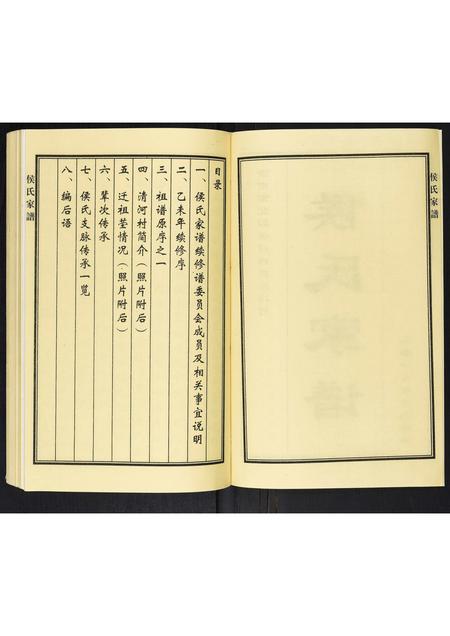 侯氏家譜
目录
一、侯氏家谱续修谱委员会成员及相关事宜说明
二、乙未年续修序
三、祖谱原序之一
四、清河村简介（照片附后）
五、迁祖茔情况（照片附后）
六、辈次传承
七、侯氏支脉传承一览
八、编后语
侯氏家譜